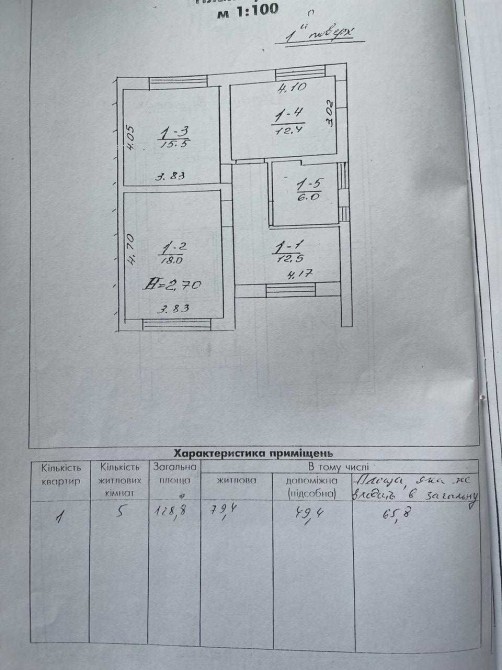 м 1:100
1" поверх
4.10
1-3
15.5
4.05
3.83
1-4
12.4
3.02
1-5
6.0
1-2
18.0
4.70
H=2,70
3.83
1-1
12.5
4.17
Характеристика приміщень
Кількість квартир
Кількість житлових кімнат
Загальна площа
В тому числі
житлова
допоміжна (підсобна)
Площа, яка не входить в загальну
1 5 128,8 79,4 49,4 65,8